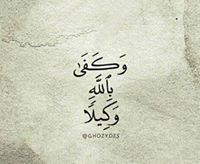 وَكَفَىٰ
بِاللَّهِ
وَكِيلًا
@GHOZYDES